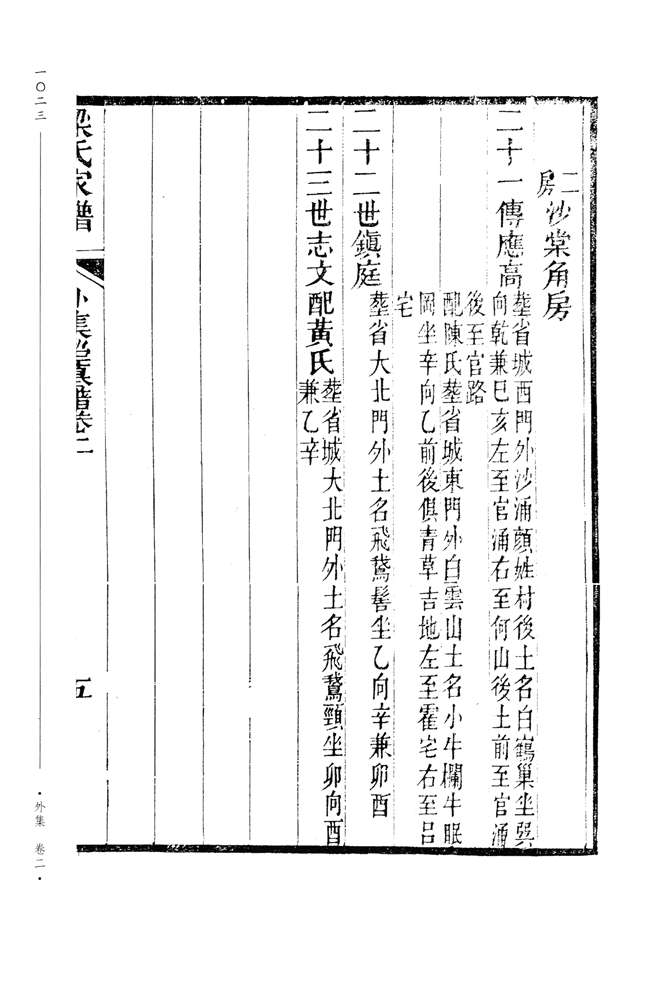 二房沙棠角房
二十一傳應高
塟省城西門外沙涌顔姓村後土名白鶴巢坐巽
向乾兼巳亥左至官涌右至何山後土前至官涌
後至官路
配陳氏塟省城東門外白雲山土名小牛欄牛眠
岡坐辛向乙前後俱青草吉地左至霍宅右至吕
宅
二十二世鎮庭
塟省大北門外土名飛鵞髻坐乙向辛兼卯酉
二十三世志文配黃氏
塟省城大北門外土名飛鵞頸坐卯向酉
兼乙辛
梁氏家譜
外集塋真譜卷二
五
一〇二三
·外集 卷二·